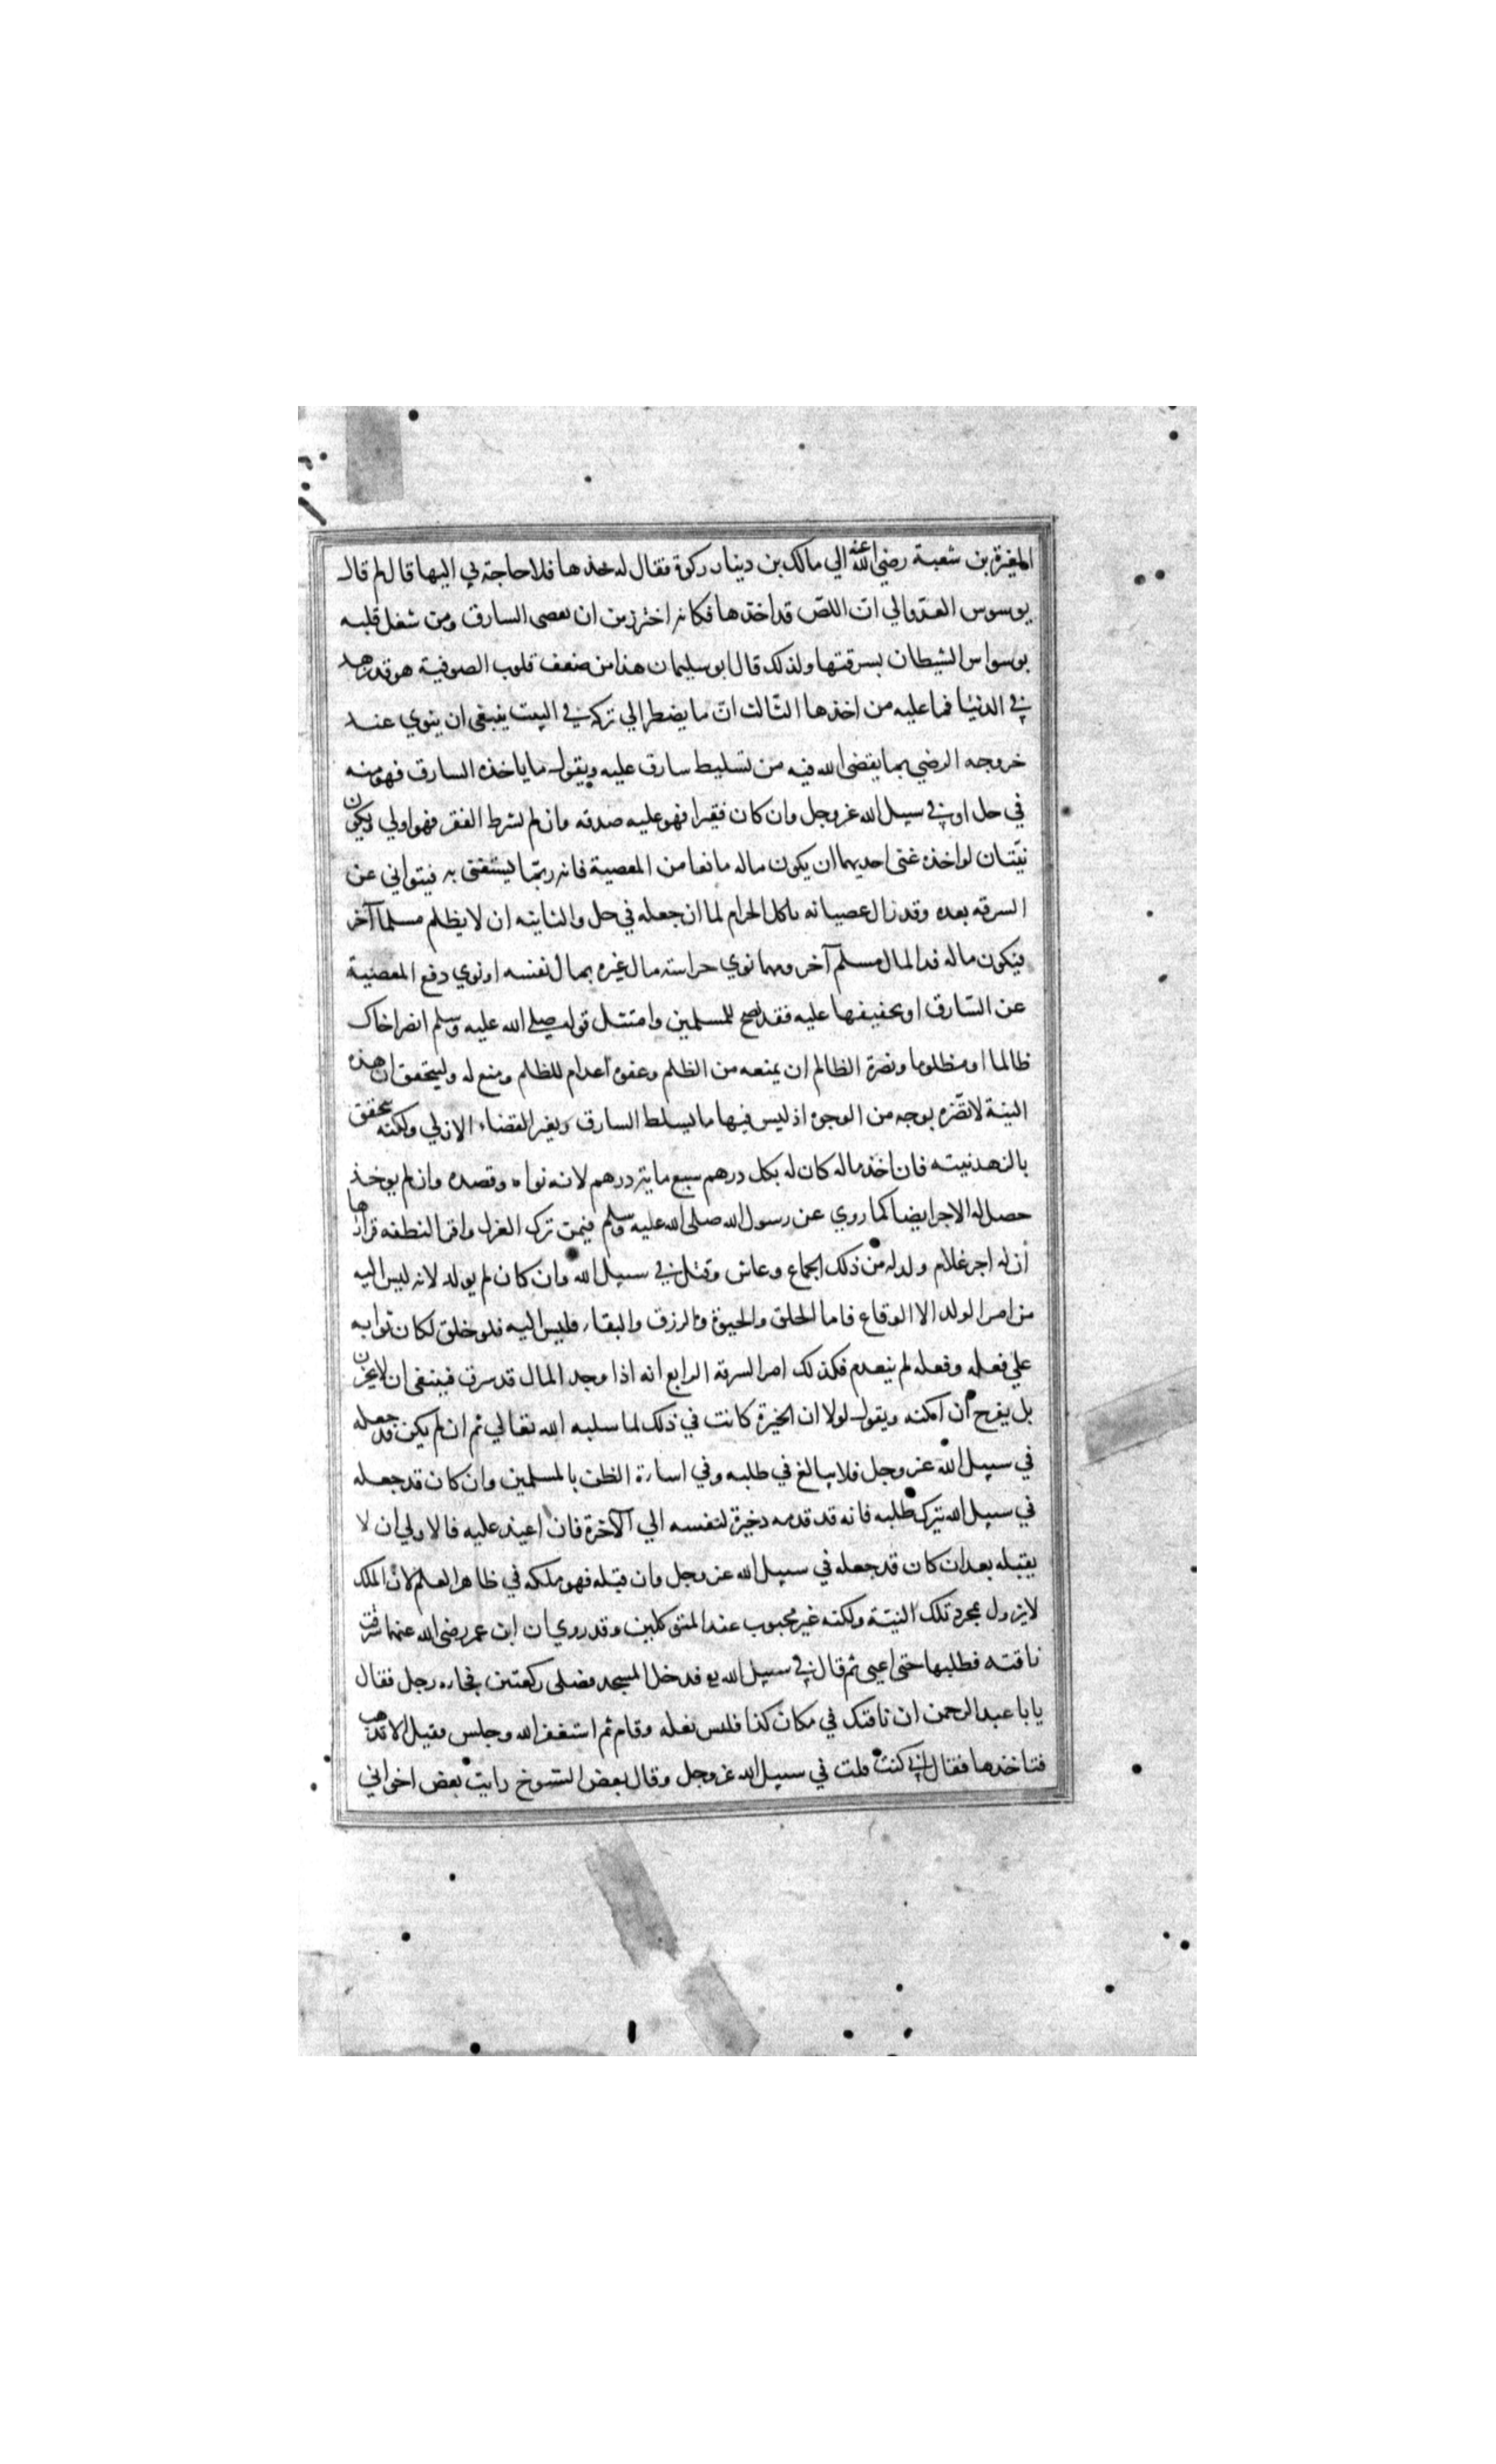 المغيرة بن شعبة رضي الله عنه الي مالك بن دينار ركوة فقال له خذها فلا حاجة لي اليها قال لم قال
يوسوس العدو الي ان اللص قد اخذها فكانه احترز من ان يعصى السارق ومن شغل قلبه
بوسواس الشيطان بسرقتها ولذلك قال ابو سليمان هذا من ضعف قلوب الصوفية هو قد زهد
في الدنيا فما عليه من اخذها الثالث ان ما يضطر الي تركه في البيت ينبغى ان ينوي عند
خروجه الرضي بما يقضى الله فيه من تسليط سارق عليه ويقول ما ياخذه السارق فهو منه
في حل او في سبيل الله عز وجل وان كان فقيرا فهو عليه صدقه وان لم يشرط الفقر فهو اولي ويكون
نيتان لو اخذه غنى احديهما ان يكون ماله مانعا من المعصية فانه ربما يستغنى به فيتواني عن
السرقه بعده وقد زال عصيانه باكل الحرام لما ان جعله في حل والثانيه ان لا يظلم مسلما آخر
فيكون ماله فدا لمال مسلم آخر ومهما نوي حراسته مال غيره بمال نفسه او نوي دفع المعصية
عن السارق او تخفيفها عليه فقد نصح للمسلمين وامتثل قوله صلي الله عليه وسلم انصر اخاك
ظالما او مظلوما ونصرة الظالم ان يمنعه من الظلم وعفوه اعدام للظلم ومنع له وليتحقق ان هذه
النية لا تضره بوجه من الوجوه اذ ليس فيها ما يسلط السارق ويغير القضاء الازلي ولكنه يتحقق
بالزهد نيته فان اخذ ماله كان له بكل درهم سبع مايه درهم لانه نواه وقصده وان لم يوخذ
حصل له الاجر ايضا كما روي عن رسول الله صلى الله عليه وسلم فيمن ترك العزل واقر النطفه قرارها
ان له اجر غلام ولد له من ذلك الجماع وعاش وقتل في سبيل الله وان كان لم يولد لانه ليس اليه
من امر الولد الا الوقاع فاما الخلق والحيوة والرزق والبقاء فليس اليه فلو خلق لكان ثوابه
علي فعله وفعله لم ينعدم فكذلك امر السرقة الرابع انه اذا وجد المال قد سرق فينبغى ان لا يحزن
بل يفرح ان امكنه ويقول لولا ان الخيرة كانت في ذلك لما سلبه الله تعالي ثم ان لم يكن قد جعله
في سبيل الله عز وجل فلا يبالغ في طلبه وفي اساءة الظن بالمسلمين وان كان قد جعله
في سبيل الله يترك طلبه فانه قد قدمه ذخيرة لنفسه الي الآخرة فان اعيد عليه فالاولي ان لا
يقبله بعد ان كان قد جعله في سبيل الله عز وجل وان قبله فهو ملكه في ظاهر العلم لان الملك
لا يزول بمجرد تلك النية ولكنه غير محبوب عند المتوكلين وقد روي ان ابن عمر رضى الله عنهما سرقت
ناقته فطلبها حتى اعيى ثم قال في سبيل الله فدخل المسجد فصلى ركعتين فجاءه رجل فقال
يا با عبد الرحمن ان ناقتك في مكان كذا فلبس نعله وقام ثم استغفر الله وجلس فقيل الا تذهب
فتاخذها فقال اني كنت قلت في سبيل الله عز وجل وقال بعض الشيوخ رايت بعض اخواني